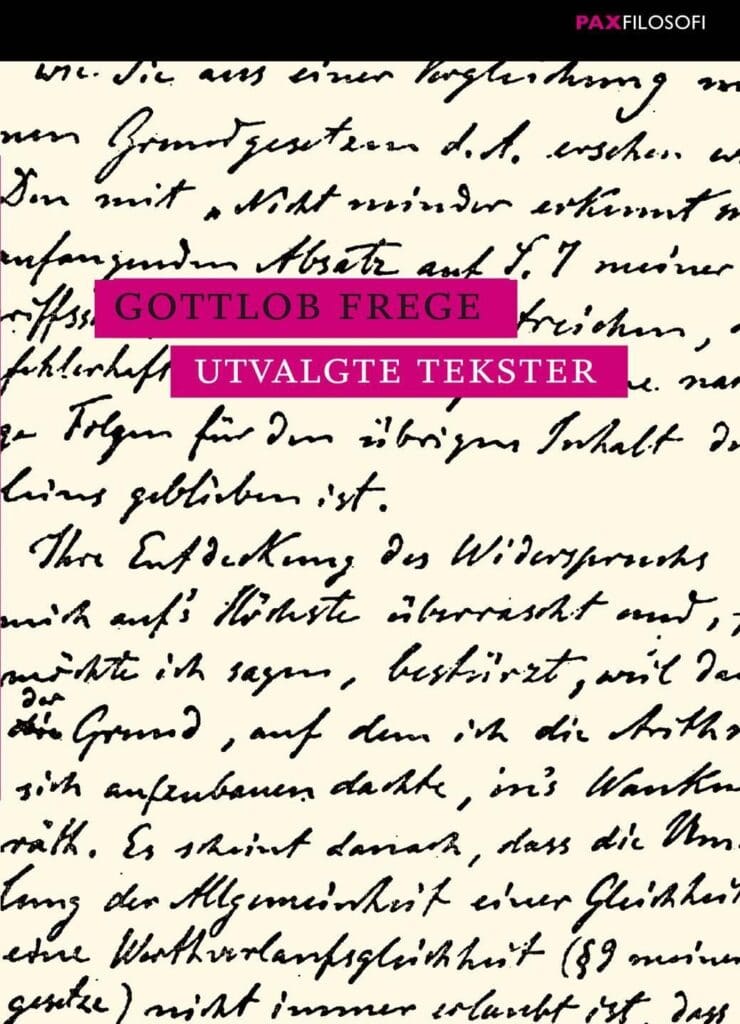 PAXFILOSOFI
wie Sie aus einer Vergleichung
nen Grundgesetzen d. A. ersehen
Den mit „Nicht minder erkennt
anfangenden Absatz auf S. 7 meiner
GOTTLOB FREGE
streichen,
fehlerhaft
UTVALGTE TEKSTER
ge Folgen für den übrigen Inhalt
leins geblieben ist.
Ihre Entdeckung des Widerspruchs
mich auf's Höchste überrascht und,
möchte ich sagen, bestürzt, weil
der
Grund, auf dem ich die Arith
sich aufzubauen dachte, in's Wanken
räth. Es scheint danach, dass die Um
lung der Allgemeinheit einer Gleichheit
eine Werthverlaufsgleichheit (§9 meiner
gesetze) nicht immer erlaubt ist, dass